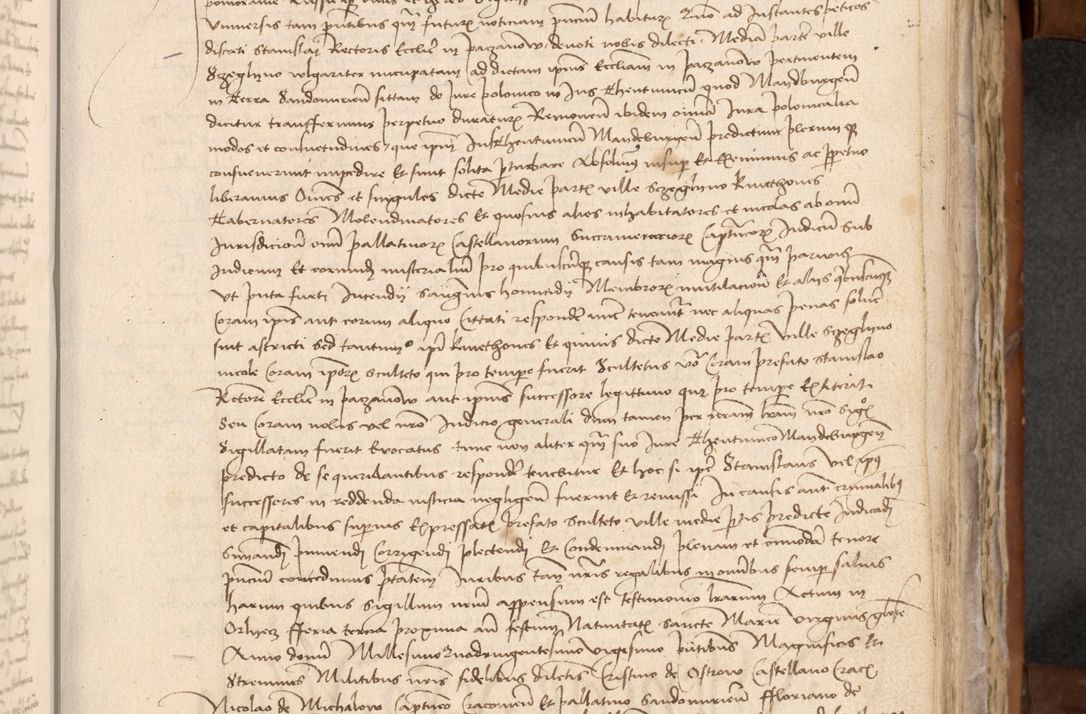 Vniversis tam pñtibus qm̃ futuris noticiam pñcium habituris Quo ad Instantes peticões
discreti Stanislai Rectoris Ecclie in paczanow devoti nobis dilecti Mediã partẽ ville
Sczeglyno wlgariter nuncupatam ad dictam ipius Ecclesiam in paczanow pertinentem
in Terra Sandomirien̄ sittam de Jure polonico in Jus Thewtunicũ quod Maydburgen̄
dicitur transfferimus perpetuo duraturũ Removen̄ ibidem omia Jura polonicalia
modos et consuetudines que ipm̃ Jus Thewtunicum Maydeburgen̄ predictum plerumq3
consueverunt impedire Et sunt solita p̱turbare Absolvim9 insup Et Eximimus ac p̱petuo
liberamus Omnes et singulos dicte Medie partis ville Sczeglyno kmethones
Tabernatores Molendinatores Et quosvis alios inhabitatores et incolas ab omni
Jurisdicione omiũ pallatinorũ Castellanorum Succamerariorũ Capitneorũ Judicũ Sub
Judicum Et eorundẽ ministerialiũ pro quibuscũq3 causis tam magnis qm̃ parvis
Ut puta furti Incendij Sangwinis homicidij Membrorũ mutilacione Et alijs quibuscũq3
Coram ipis aut eorum aliquo Cittati respondẽ mĩe teneant̃ nec aliquas penas solvẽ
sint astricti Sed tantum͂ ipi kmethones Et quivis dicte Medie partis ville Sczeglyno
incole Coram ipõrũ Sculteto qui pro tempore fuerit Scultetus võ Coram prefato Stanislao
Rectore Ecclie in paczanow aut ipius successore legittimo qui pro tempe Extiterit
Seu Coram nobis vel nr̃o Judicio generali dum tamen per nr̃am lr̃am nr̃o Sigo
Sigillatam fuerit Evocatus tunc non aliter qm̃ suo Jure Thewtunico Maydeburgen̄
predicto de se querulantibus respondẽ tenebitur Et hoc si ipẽ Stanislaus vel ip̃i9
successores in reddenda iusticia negligen̄ fuerint Et remissi In causis aut̃ criminalib9
et capitalibus superius Expressatis prefato Sculteto ville medie p̱tis predicte Judicadj
Sentenciandj puniendj Corrigendj plectendj Et Condemnandj plenam et omnodã tenore
pñcium concedimus p̃tatem Juribus tam̃ nr̃is regalibus in omibus semp̱ salvis
harum quibus Sigillum nr̃um appensum est testimonio lr̃arum Actum in
feria tercia proxima an̄ festum Nativitatis Sancte Marie Virginis gl̃ose
Anno domini Millesimo Quadringentesimo vigesimo p̃ntibus Magnificis Et
Strennuis Militibus nr̃is fidelibus dilectis Cristino de Ostrow Castellano Crac̃
Nicolao de Michalow Capitneo Cracovien̄ Et pallatino Sandomirien̄ Floriano de